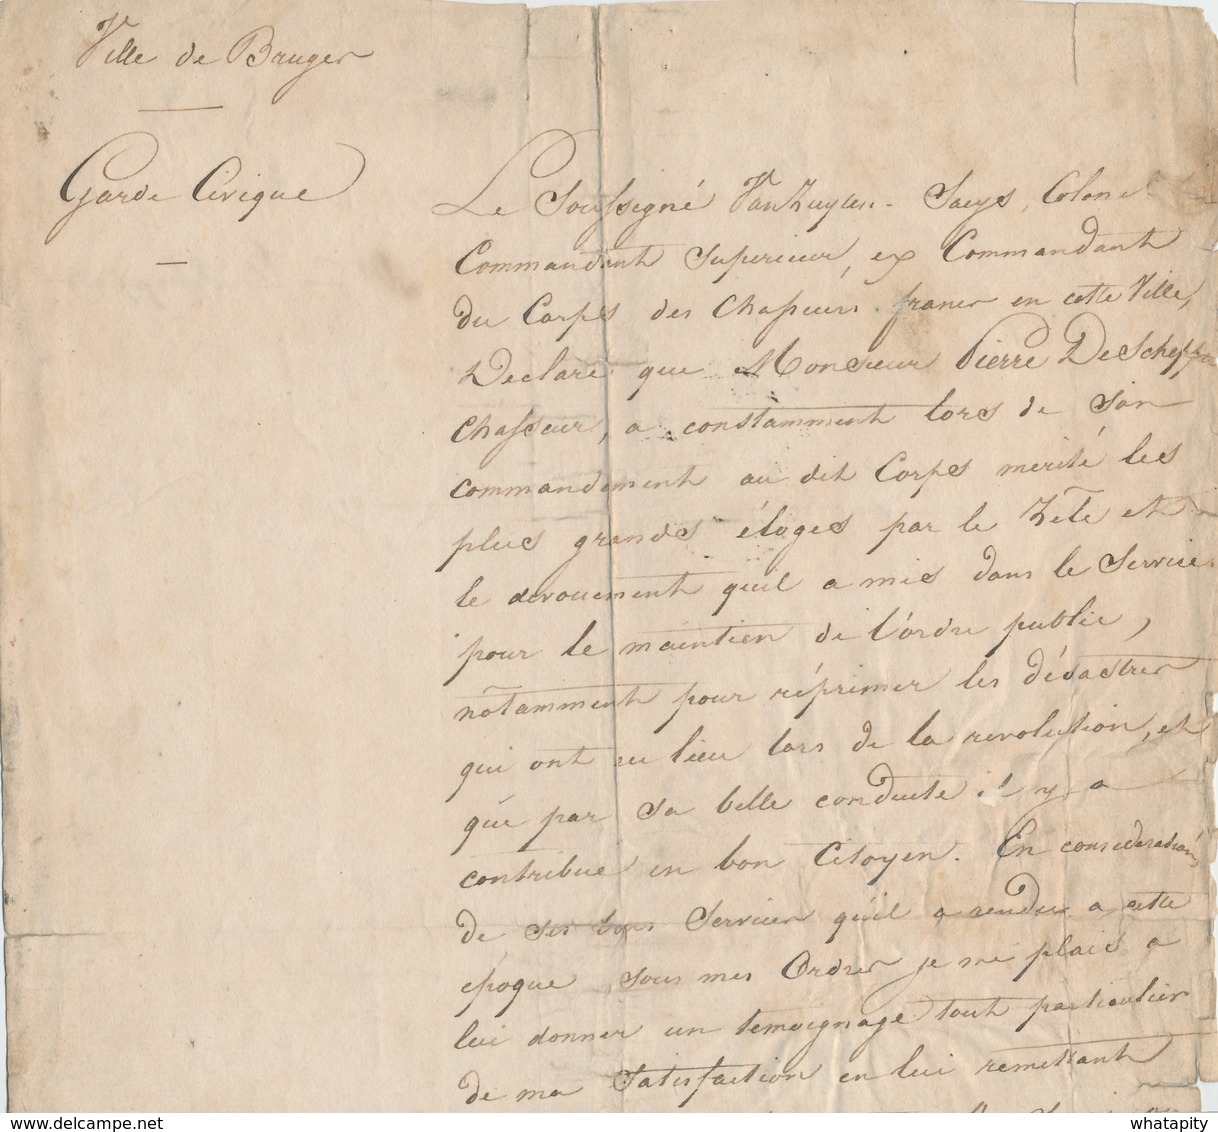 Ville de Bruges
Garde Civique
Le Soussigné Vanzuylen - Saeys, Colonel
Commandant Superieur, ex Commandant
du Corps des Chasseurs francs en cette Ville,
Declare que Monsieur Pierre DeSchepper
Chasseur, a constamment lors de son
commandement au dit Corps merité les
plus grands éloges par le Zèle et
le devouement qu'il a mis dans le Service
pour le maintien de l'ordre public,
notamment pour réprimer les désastres
qui ont eu lieu lors de la revolution, et
que par sa belle conduite il y a
contribué en bon Citoyen. En consideration
de ses bons Services qu'il a rendu a cette
époque sous mes Ordres je me plais a
lui donner un temoignage tout particulier
de ma Satisfaction en lui remettant
whatapity